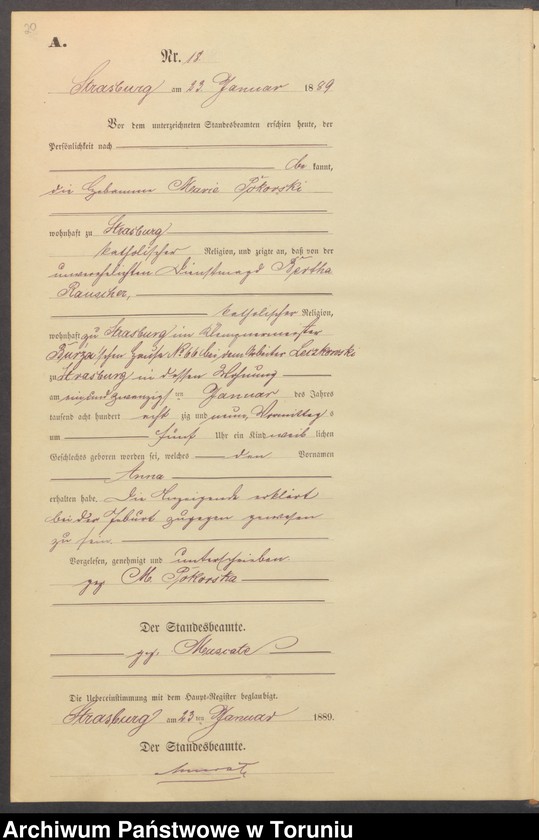 A.
Nr. 18
Strasburg am 23 Januar 1889
Vor dem unterzeichneten Standesbeamten erschien heute, der
Persönlichkeit nach
be kannt,
die Hebamme Marie Pokorski
wohnhaft zu Strasburg
katholischer Religion, und zeigte an, daß von der
unverehelichten Dienstmagd Bertha
Rauscher,
katholischer Religion,
wohnhaft zu Strasburg im Klempnermeister
schen Hause No 66 bei dem Arbeiter
zu Strasburg in dessen Wohnung
am ein und zwanzigsten Januar des Jahres
tausend acht hundert acht zig und neun, Vormittags
um fünf Uhr ein Kind weib lichen
Geschlechts geboren worden sei, welches den Vornamen
Anna
erhalten habe. Die Anzeigende erklärt
bei der Geburt zugegen gewesen
zu sein.
Vorgelesen, genehmigt und unterschrieben
gez M. Pokorska
Der Standesbeamte.
gez. Muscate
Die Uebereinstimmung mit dem Haupt-Register beglaubigt.
Strasburg am 23 ten Januar 1889.
Der Standesbeamte.
Archiwum Państwowe w Toruniu